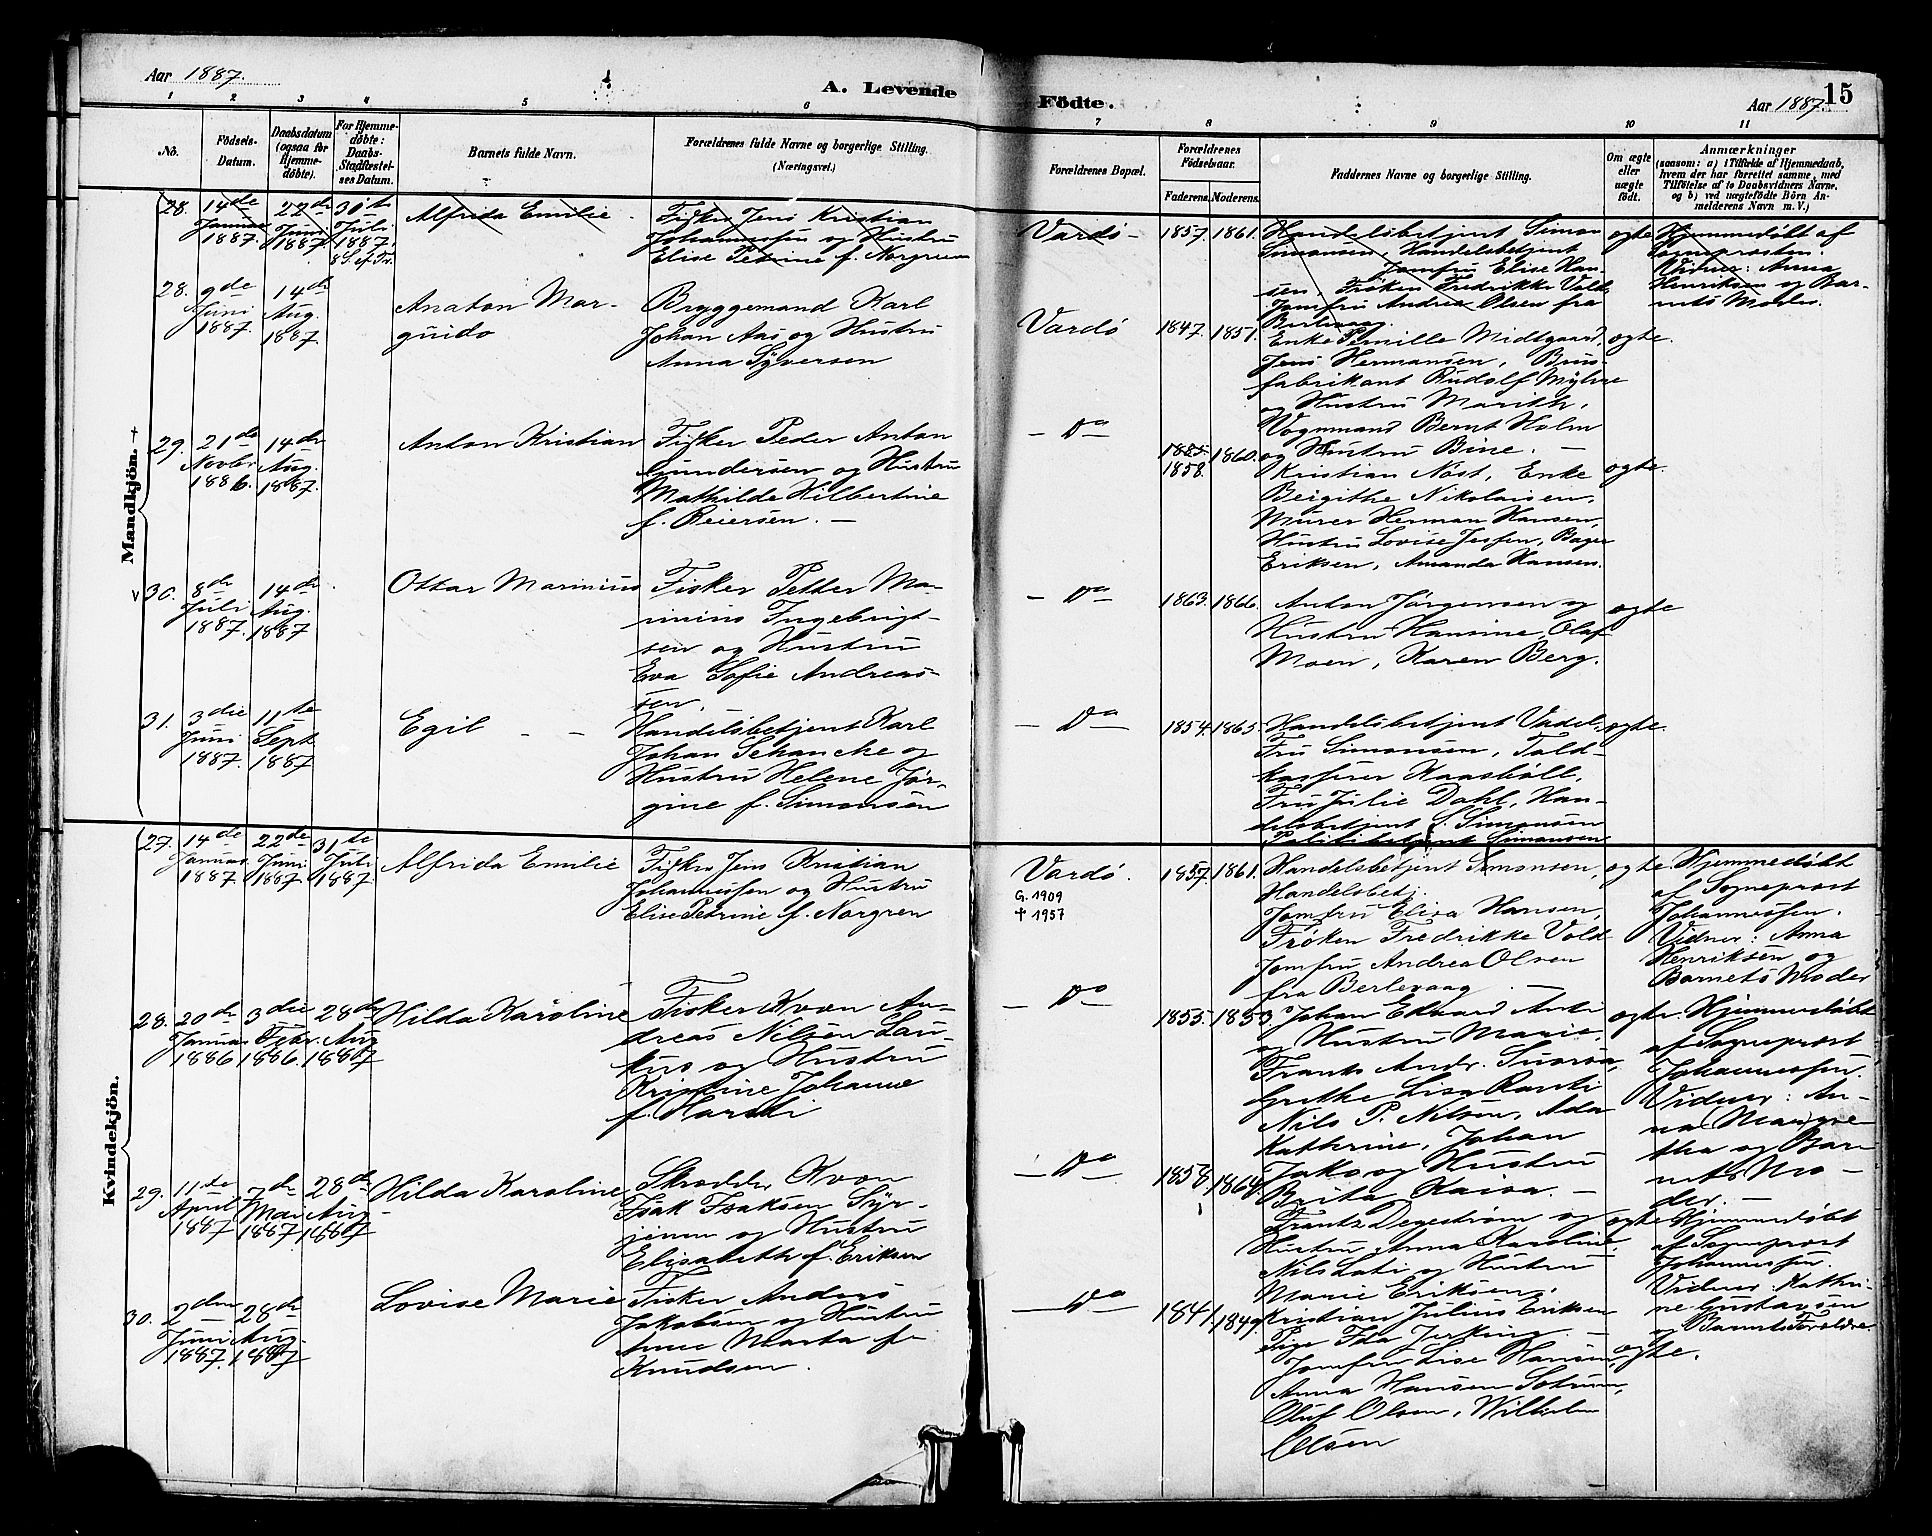 Aar 1887.
A. Levende
Födte.
Aar 1887.
15
1 2 3 4 5 6 7 8 9 10 11
No.
Födsels-
Datum.
Daabsdatum
(ogsaa for
Hjemme-
döbte).
For Hjemme-
döbte:
Daabs-
Stadfæstel-
ses Datum.
Barnets fulde Navn.
Forældrenes fulde Navne og borgerlige Stilling.
(Næringsvei.)
Forældrenes Bopæl.
Forældrenes
Födselsaar.
Faderens. Moderens.
Faddernes Navne og borgerlige Stilling.
Om ægte
eller
uægte
födt.
Anmærkninger
(saasom: a) i Tilfælde af Hjemmedaab,
hvem der har forrettet samme, med
Tilföielse af to Daabsvidners Navne,
og b) ved uægtefödte Börn An-
melderens Navn m. V.)
Mandkjön.
28.
14de
Januar
1887.
22de
Juni
1887.
30te
Juli
1887.
8 S. ef. Tr.
Alfrida Emilie
Fisker Jens Kristian
Johannessen og Hustru
Elise Petrine f. Norgreen
Vardö
1857. 1861.
Handelsbetjent Simon
Simonsen, Handelsbetjent
Jomfru Elise Han-
sen Frøken Fredrikke Vold
Jomfru Andrea Olsen fra
Berlevaag
ægte
Hjemmedøbt af
Sogneprosten.
Vidner: Anna
Henriksen og Bar-
nets Moder.
28.
9de
Juni
1887.
14de
Aug.
1887.
Anaton Mar-
guido
Bryggemand Karl
Johan Aas og Hustru
Anna Syversen
Vardö
1847. 1851.
Enke Pernille Midtgaard,
Jens Hermansen, Brus-
fabrikant Rudolf Myhre
og Hustru Marith,
Vognmand Bernt Holm
og Hustru Bine. —
ægte.
29.
21de
Novbr
1886.
14de
Aug.
1887.
Anton Kristian
Fisker Peder Anton
Gundersen og Hustru
Mathilde Hilbertine
f. Reiersen. —
— Do
1858. 1860.
Kristian Nöst, Enke
Beigithe Nikolaisen,
Murer Herman Hansen,
Hustru Lovise Jessen, Bager
Eriksen, Amanda Hansen.
ægte.
30.
8de
Juli
1887.
14de
Aug.
1887
Ottar Marinius
Fisker Petter Ma-
rinius Ingebrigt-
sen og Hustru
Eva Sofie Andreas-
sen.
— Do
1863. 1866.
Anton Jörgensen og
Hustru Hansine, Olaf
Moen, Karen Berg.
ægte
31.
3die
Juni
1887.
11te
Sept
1887
Egil — —
Handelsbetjent Karl
Johan Schancke og
Hustru Helene Jör-
gine f. Simonsen
— Do
1854. 1865.
Handelsbetjent Vadel,
Fru Simonsen, Told-
kasserer Kaasböll,
Fru Julie Dahl, Han-
delsbetjent S. Simonsen
Politibetjent Simonsen
ægte.
Kvindekjön.
27.
14de
Januar
1887
22de
Juni
1887.
31te
Juli
1887.
Alfrida Emilie
Fisker Jens Kristian
Johannessen og Hustru
Elise Petrine f. Norgren
Vardö.
G. 1909
† 1957
1857. 1861.
Handelsbetjent Simonsen,
Handelsbetj.
Jomfru Elisa Hansen,
Frøken Fredrikke Vold
Jomfru Andrea Olsen
fra Berlevaag —
ægte.
Hjemmedøbt
af Sogneprost
Johannessen.
Vidner: Anna
Henriksen og
Barnets Moder
28.
20de
Januar
1886
3die
Febr.
1886.
28de
Aug
1887
Hilda Karoline
Fisker Kvæn An-
dreas Nilsen Lau-
kus og Hustru
Kristine Johanne
f. Harski
— Do
1855. 1853.
Johan Edvard Anti
og Hustru Marie,
Frants Andr.
Grethe Lisa
Nils P. Nilsen, Ada
Kathrine, Johan
Jako og Hustru
Brita Kaisa. —
ægte.
Hjemmedøbt
af Sogneprost
Johannessen.
Vidner: An-
na Margre
tha og Bar-
nets Mo-
der. —
29.
11te
April
1887
7de
Mai
1887
28de
Aug.
1887
Hilda Karoline
Skrædder Kvæn
Isak Isaksen Syr-
jenen og Hustru
Elisabeth f. Eriksen
— Do
1858. 1864.
Frantz Degestrøm og
Hustru Anna Karoline.
Nils Lati og Hustru
Marie Eriksen,
ægte
Hjemmedøbt
af Sogneprost
Johannessen.
Vidner: Kathri-
ne Gustavsen
og Barnets Forældre.
30.
2den
Juni
1887.
28de
Aug.
1887
Lovise Marie
Fisker Anders
Jakobsen og Hustru
Anne Marta f.
Knudsen.
— Do
1841. 1849.
Kristian Julius Eriksen
Pige Ida —
Jomfru Lise Hansen,
Anna Hansen
Oluf Olsen, Wilhelm
Olsen
ægte.